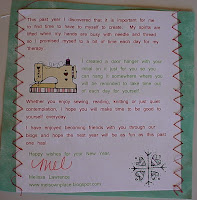 This past year I discovered that it is important for me
to find time to have to myself to create. My spirits are
lifted when my hands are busy with needle and thread,
so I promised myself to a bit of time each day for my
therapy.
I created a door hanger with your
name on it just for you so you
can hang it somewhere where you
will be reminded to take time out
of each day for yourself.
Whether you enjoy sewing, reading, knitting or just quiet
contemplation, I hope you will make time to be good to
yourself everyday.
I have enjoyed becoming friends with you through our
blogs and hope the next year will be as fun as the past
one has!
Happy wishes for your new year,
Mel
Melissa Lawrence